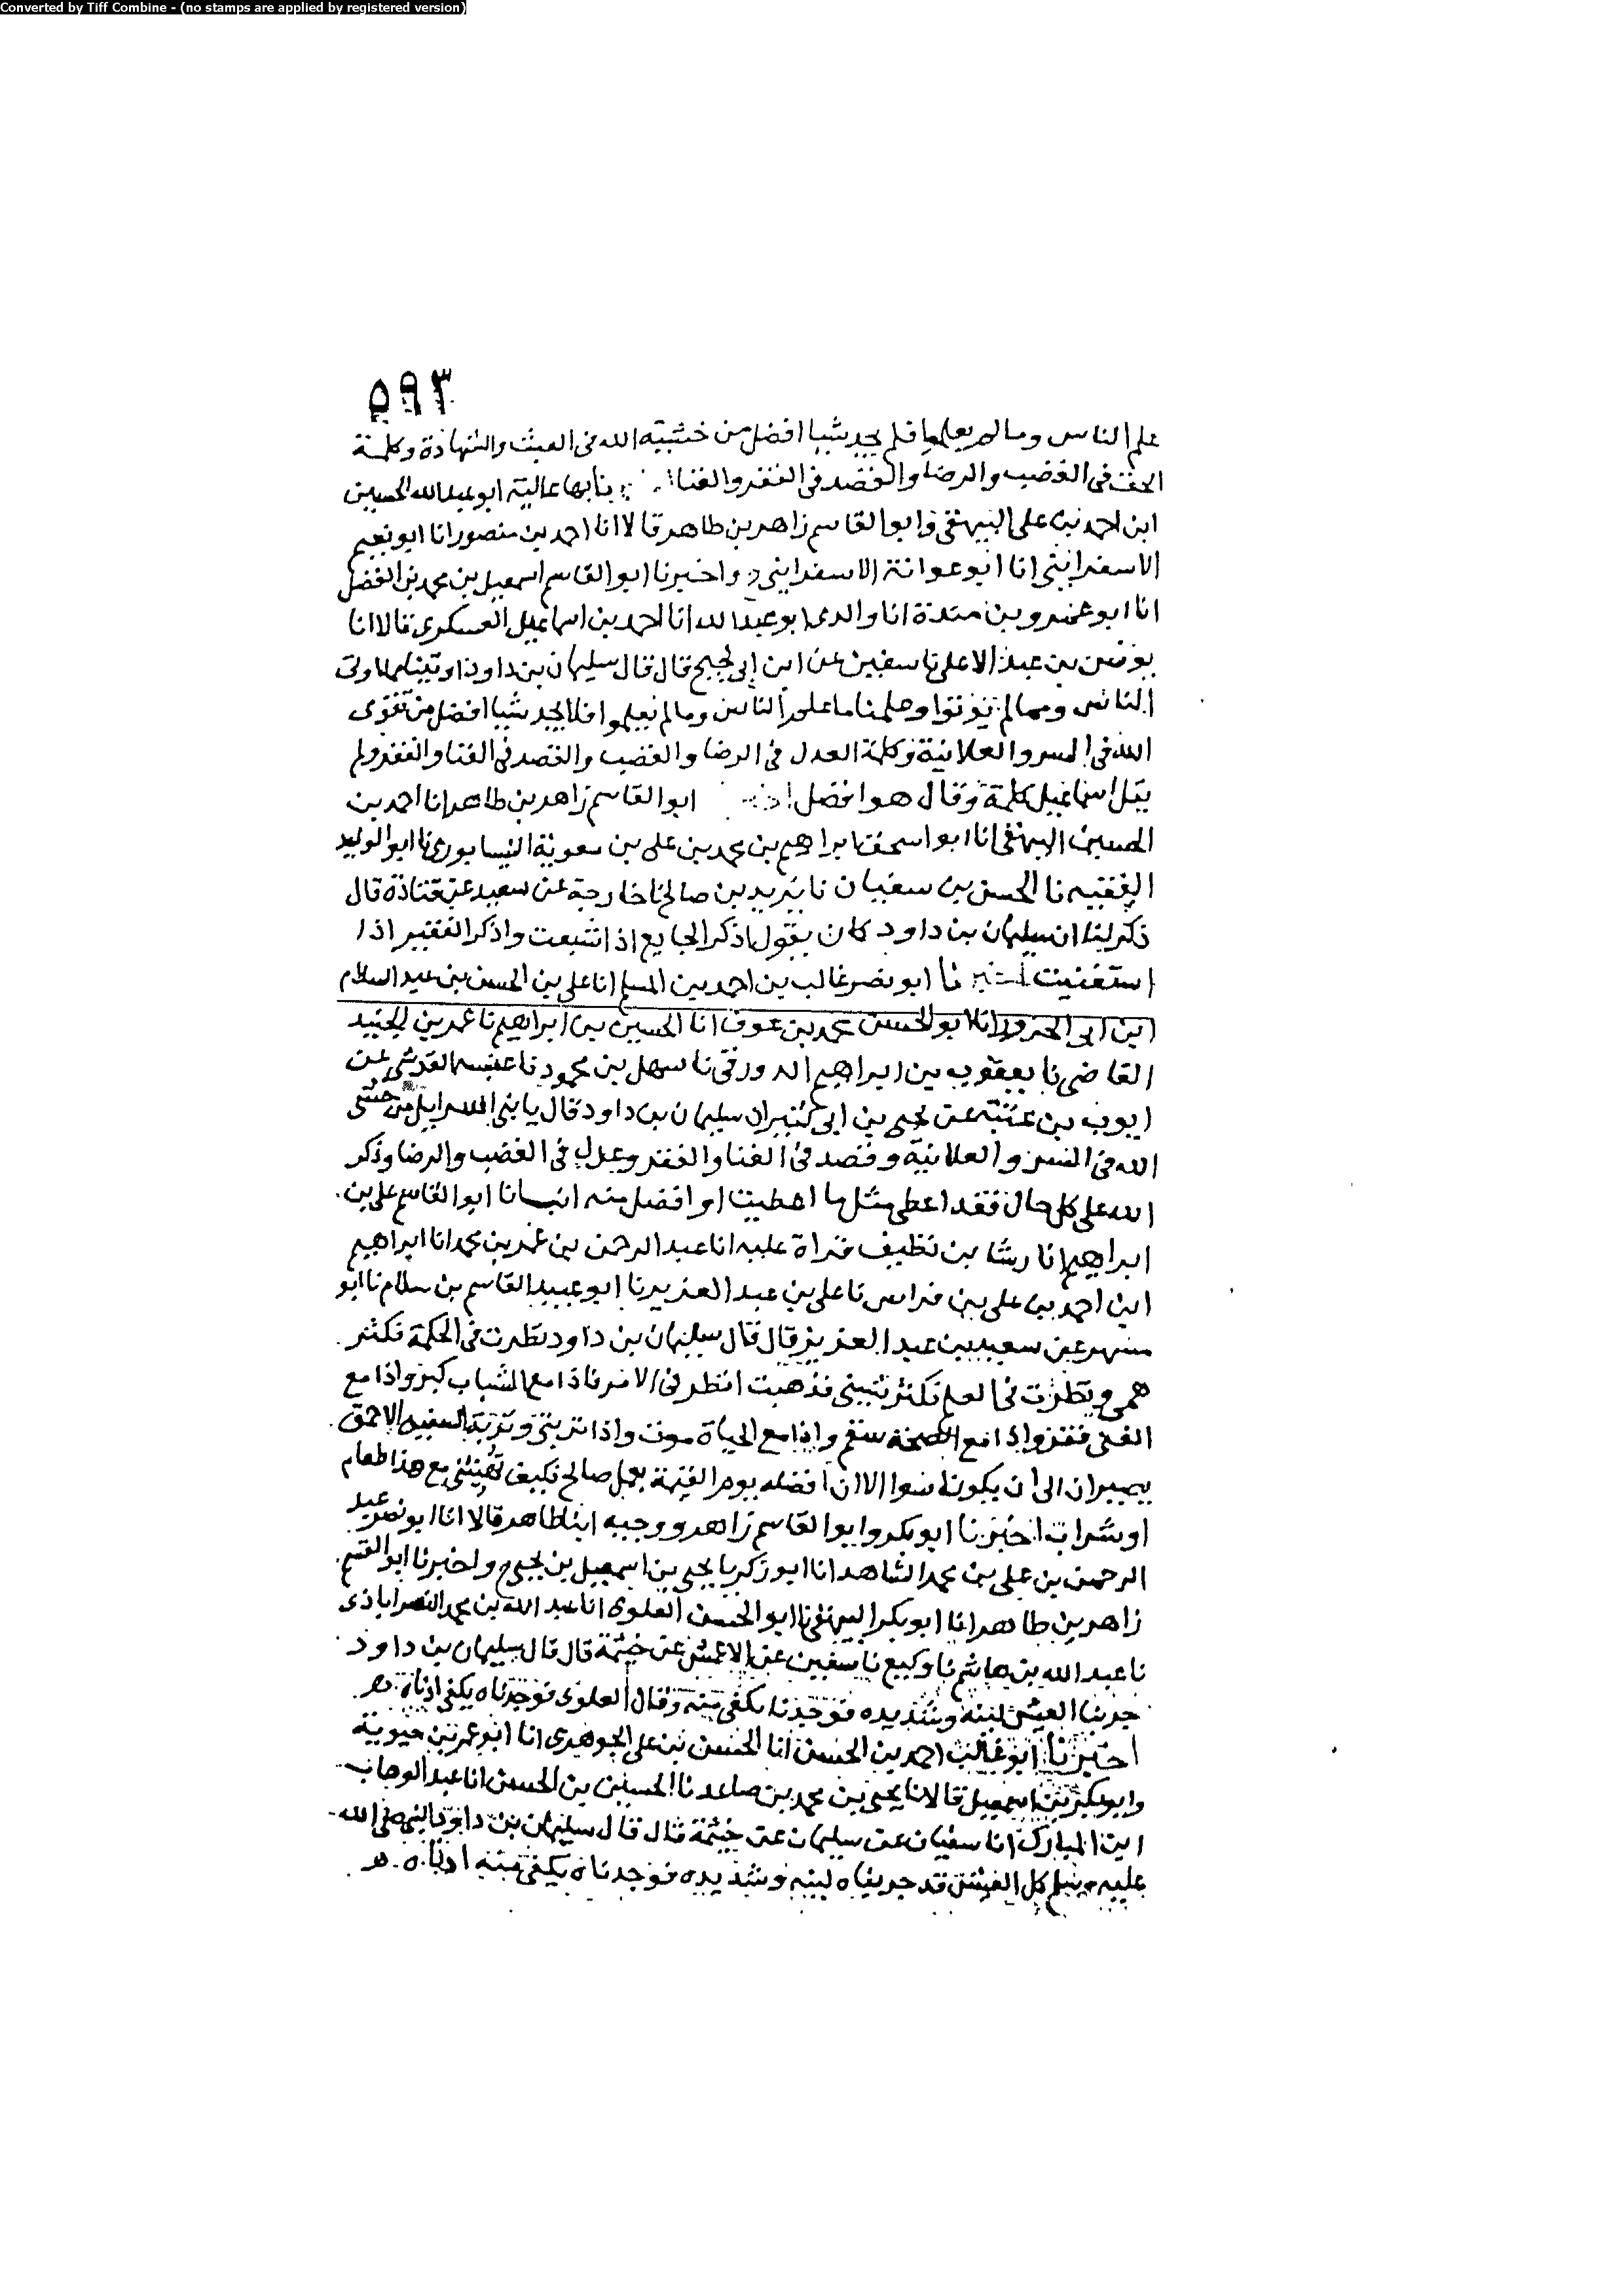 Converted by Tiff Combine - (no stamps are applied by registered version)
٥٩٣
علم الناس ومالم يعلموا فلم يجد شيا افضل من خشية الله فى الغيب والشهادة وكلمة
الحق فى الغضب والرضا والقصد فى الفقر والغنا نا بها عالية ابو عبد الله الحسين
ابن احمد بن على البيهقى وابو القاسم زاهر بن طاهر قالا انا احمد بن منصور انا ابو نعيم
الاسفراينى انا ابو عوانة الاسفراينى واخبرنا ابو القاسم اسمعيل بن محمد بن الفضل
انا ابو عمرو بن مندة انا والدى ابو عبد الله انا احمد بن اسماعيل العسكرى قالا انا
يونس بن عبد الاعلى نا سفين عن ابن ابى نجيح قال قال سليمان بن داود اوتينا ما اوتى
الناس ومما لم يوتوا وعلمنا ما علم الناس ومالم يعلموا فلا يجد شيا افضل من تقوى
الله فى السر والعلانية وكلمة العدل فى الرضا والغضب والقصد فى الغنا والفقر ولم
يقل اسماعيل كلمة وقال هو افضل ابو القاسم زاهر بن طاهر انا احمد بن
الحسين البيهقى انا ابو اسحق ابراهيم بن محمد بن على بن معوية النيسابورى نا ابو الوليد
الفقيه نا الحسن بن سفيان نا يزيد بن صالح نا خارجة عن سعيد عن قتادة قال
ذكر لنا ان سليمان بن داود كان يقول اذكر الجايع اذا شبعت واذكر الفقير اذا
استغنيت اخبرنا ابو نصر غالب بن احمد بن المسلم انا على بن الحسن بن عبد السلام
ابن ابى الحزور انا ابو الحسن محمد بن عوف انا الحسين بن ابراهيم نا عمر بن الجنيد
القاضى نا يعقوب بن ابراهيم الدورقى نا سهل بن محمود نا عنبسه القرشى عن
ايوب بن عتبة عن يحيى بن ابى كثير ان سليمان بن داود قال يا بنى اسرايل من خشى
الله فى السر والعلانية وقصد فى الغنا والفقر وعدل فى الغضب والرضا وذكر
الله على كل حال فقد اعطى مثل ما اعطيت او افضل منه انبانا ابو القاسم على بن
ابراهيم انا رشا بن نظيف قراة عليه انا عبد الرحمن بن عمر بن محمد انا ابراهيم
ابن احمد بن على بن فراس نا على بن عبد العزيز نا ابو عبيد القاسم بن سلام نا ابو
مسهر عن سعيد بن عبد العزيز قال قال سليمان بن داود نظرت فى الحكمة فكثر
همى ونظرت فى العلم فكثر شيبى فذهبت انظر فى الامر فاذا مع الشباب كبر واذا مع
الغنى فقر واذا مع الصحة سقم واذا مع الحياة موت واذا تربتى وتربة السفيه الاحمق
يصيران الى ان يكونا سوا الا ان افضله يوم القيمة بعمل صالح فكيف تهينى مع هذا طعام
او شراب اخبرنا ابو بكر وابو القاسم زاهر ووجيه ابنا طاهر قالا انا ابو نصر عبد
الرحمن بن على بن محمد الشاهد انا ابو زكريا يحيى بن اسمعيل بن يحيى ح واخبرنا ابو القسم
زاهر بن طاهر انا ابو بكر البيهقى نا ابو الحسن العلوى انا عبد الله بن محمد النصراباذى
نا عبد الله بن هاشم نا وكيع نا سفين عن الاعمش عن خيثمة قال قال سليمان بن داود
جربنا العيش لينه وشديده فوجدنا يكفى منه وقال العلوى فوجدناه يكفى ادناه
اخبرنا ابو غالب احمد بن الحسن انا الحسن بن على الجوهرى انا ابو عمر بن حيوية
وابو بكر بن اسمعيل قالا نا يحيى بن محمد بن صاعد نا الحسين بن الحسن انا عبد الوهاب
ابن المبارك انا سفيان عن سليمان عن خيثمة قال قال سليمان بن داود النبى صلى الله
عليه وسلم كل العيش قد جربناه لينه وشديده فوجدناه يكفى منه ادناه